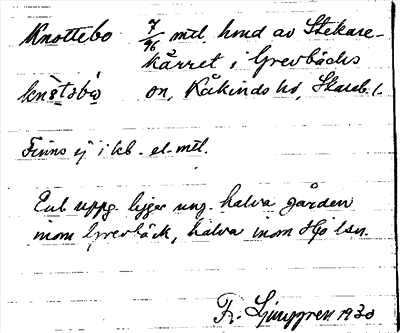 Knottebo 7/96 mtl. hmd av Stekare-
kärret i Grevbäcks
knǹtsbo̥ sn, Kåkinds hd, Skarab. l.
Finns ej i kb. el. mtl.
Enl. uppg. ligger ung. halva gården
inom Grevbäck, halva inom Hjo lsn.
Fr. Ljunggren 1930